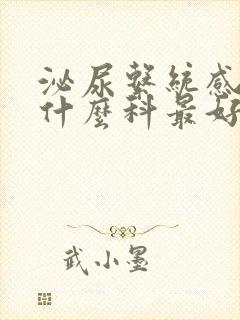 泌尿繫統感
什麼科最好
武小墨